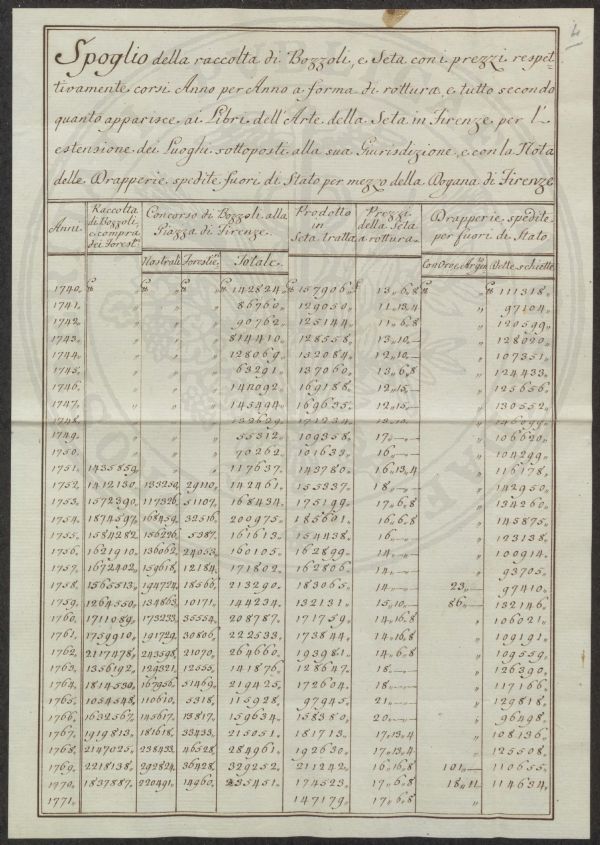 4
Spoglio della raccolta di Bozzoli, e Seta con i prezzi respet-
tivamente corsi Anno per Anno a forma di rottura, e tutto secondo
quanto apparisce ai Libri dell'Arte della Seta in Firenze per l'
estensione dei Luoghi sottoposti alla sua Giurisdizione, e con la Nota
delle Drapperie spedite fuori di Stato per mezzo della Dogana di Firenze
Anni. Raccolta di Bozzoli, e compra dei Forest. Concorso di Bozzoli alla Piazza di Firenze. Prodotto in Seta tratta Prezzi della Seta a rottura. Drapperie spedite per fuori di Stato
Nostrali Forestie. Totale. Con Oro, e Argen. Dette schiette
1740. " " 142824. 157906. 13.6.8 111318.
1741. " " " 86760. 129050. 11.13.4 " 97104.
1742. " " " 90762. 125144. 11.6.8 " 120599.
1743. " " " 814410. 128558. 13.10.- " 128020.
1744. " " " 128069. 132084. 12.10.- " 107351.
1745. " " " 63291. 137060. 13.6.8 " 124433.
1746. " " " 169188. 12.15.- " 125656.
1747. " " " 145494. 169635. 12.15.- " 130552.
1748. 171234.
1749. " " " 55312. 109358. 17.-.- " 106620.
1750. " " " 70262. 101633. 16.-.- " 104299.
1751. 1435859. " " 117637. 143780. 16.13.4 " 116178.
1752. 1412130. 133250. 29110. 142461. 155337. 18.-.- " 142950.
1753. 1572390. 117326. 51107. 168434. 175199. 17.6.8 " 134260.
1754. 1874597. 168459. 32516. 200975. 185601. 16.6.8 " 145875.
1755. 1584282. 156226. 5387. 161613. 154438. 16.-.- " 123138.
1756. 1621910. 136062. 24053. 160105. 162899. 14.-.- " 100914.
1757. 1672402. 159618. 12184. 171802. 162806. 14.-.- " 93705.
1758. 1565513. 194724. 18566. 213290. 183065. 14.-.- 23.- 97410.
1759. 1264550. 134863. 10171. 144234. 132131. 15.10.- 86.- 132146.
1760. 1711089. 173233. 35554. 208787. 171759. 14.16.8 " 106021.
1761. 1759910. 191729. 30806. 222533. 173844. 14.16.8 " 109191.
1762. 2117478. 243598. 21070. 264660. 193981. 14.6.8 " 109559.
1763. 1356192. 129321. 12555. 141876. 128647. 18.-.- " 126390.
1764. 1814530. 167956. 51469. 219425. 172604. 18.-.- " 117166.
1765. 1054548. 110610. 5318. 115928. 97945. 21.-.- " 129818.
1766. 1632567. 145617. 13817. 159634. 158380. 20.-.- " 96498.
1767. 1919813. 181618. 33433. 215051. 181713. 17.13.4 " 108136.
1768. 2147025. 238433. 46528. 284961. 192630. 17.13.4 " 125508.
1769. 2218138. 292824. 36428. 329252. 211242. 16.16.8 101.- 110655.
1770. 1837887. 220491. 14960. 235451. 174523. 17.6.8 18.11 114634.
1771. 147179. 17.6.8